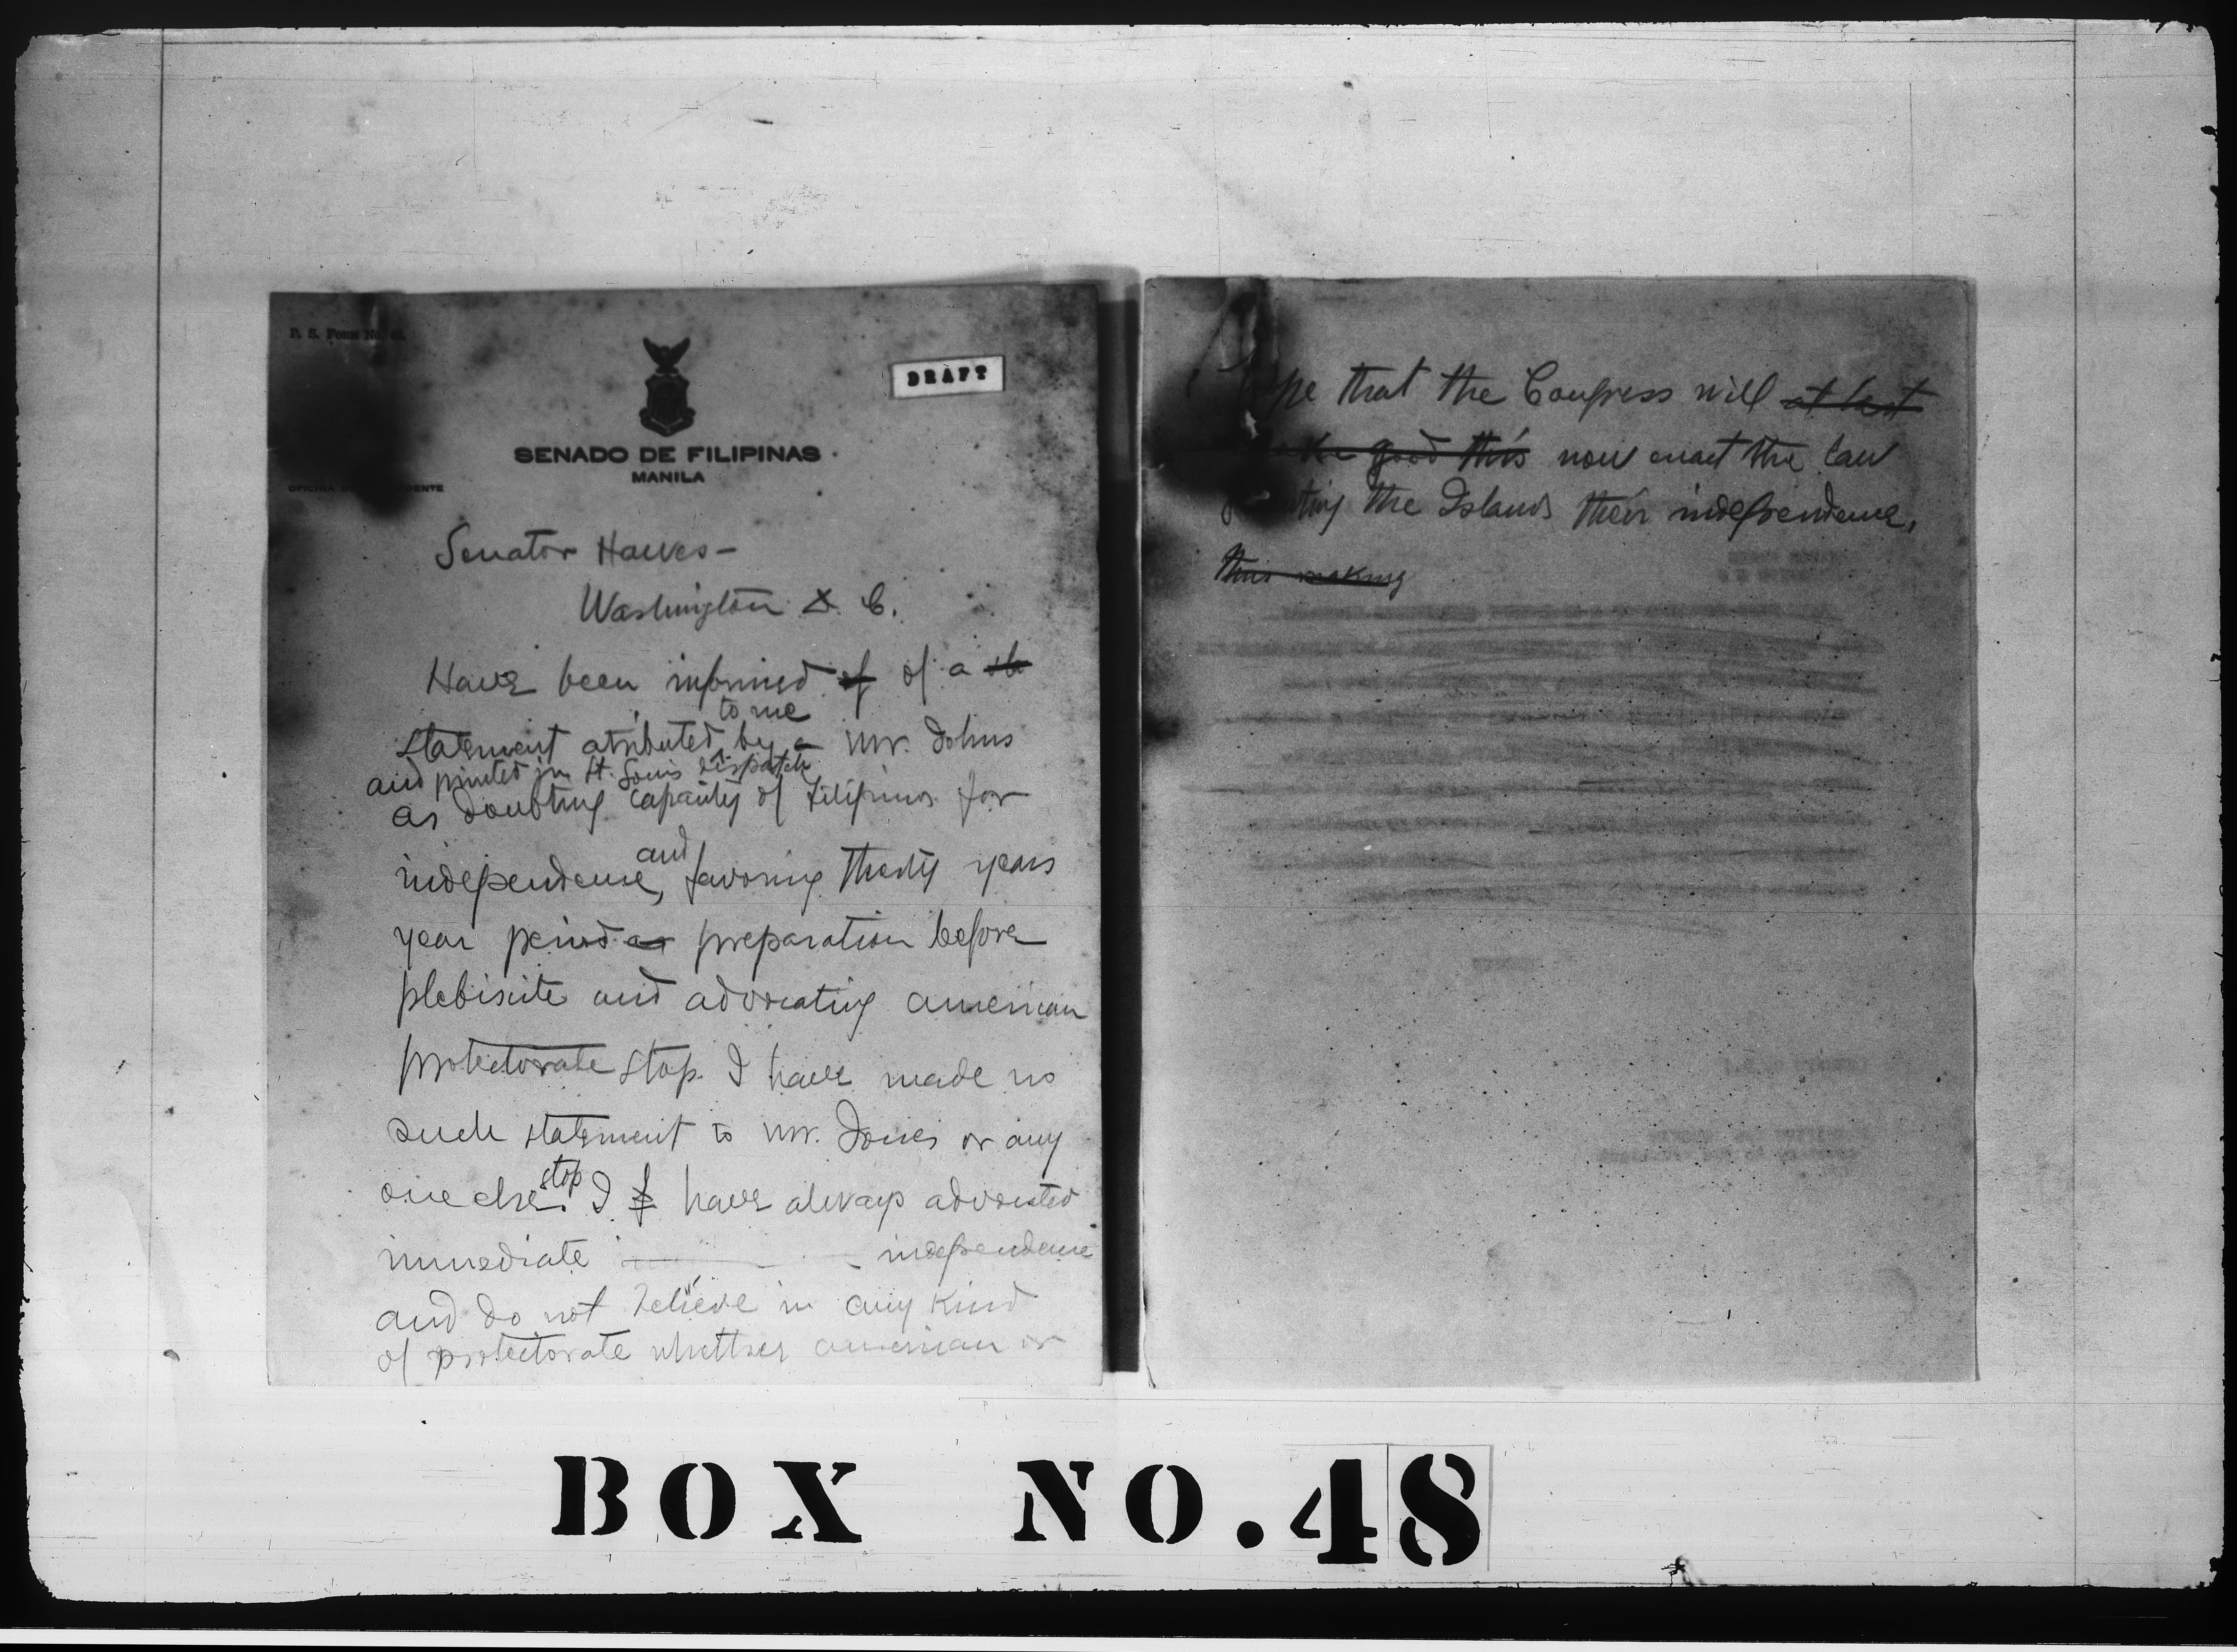 P. S. Form No.
DRAFT
SENADO DE FILIPINAS
MANILA
Senator Hawes-
Washington D. C.
Have been informed of of a
to me
statement atributed by a Mr. Johns
and printed in St. Louis Dispatch
as doubting capacity of Filipinos for
and
independence, favoring thirty years
year period as preparation before
plebiscite and advocating american
protectorate stop. I have made no
such statement to Mr. Jones or any
stop
one else. I have always advocated
immediate independence
and do not believe in any kind
of protectorate whether american or
that the Congress will at last
good this now enact the law
the Islands their independence,
this making
BOX NO.48